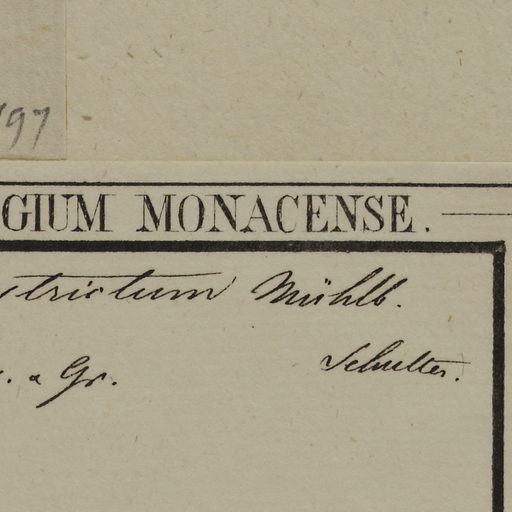 97
GIUM MONACENSE.
strictum Mühlb.
. a Gr.
Schultes.